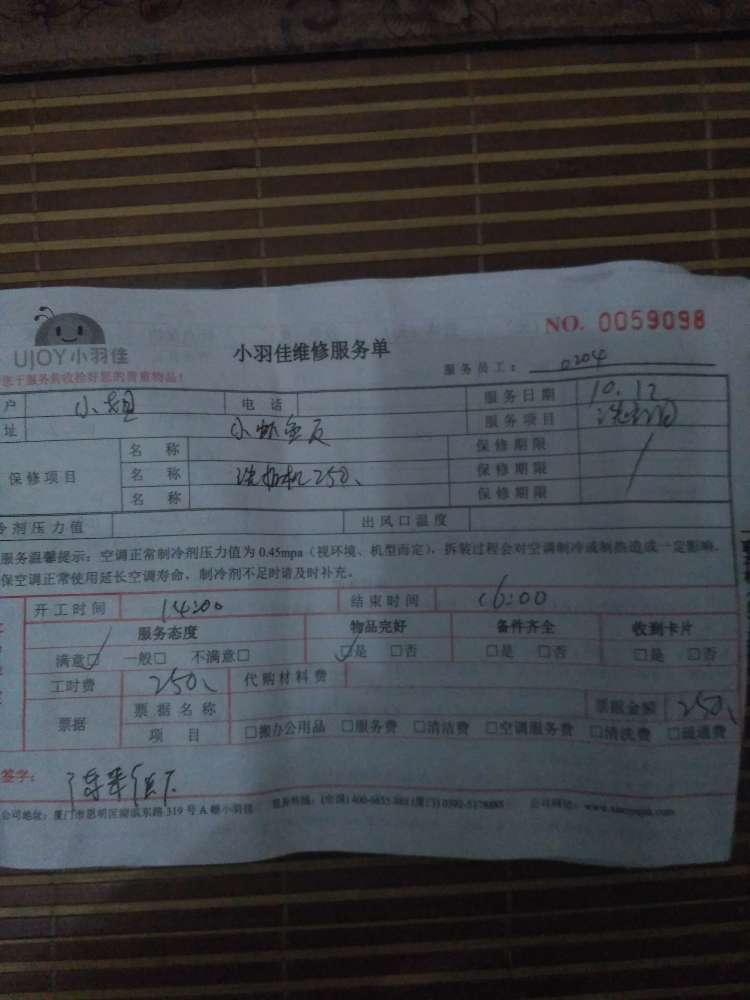 UJOY小羽佳
小羽佳维修服务单
NO. 0059098
服务员工： 0204
于服务前收捡好您的贵重物品！
户 小姐 电 话 服务日期 10.12
址 服务项目
保修项目 名 称 保修期限
名 称 250 保修期限
名 称 保修期限
剂压力值 出风口温度
服务温馨提示：空调正常制冷剂压力值为 0.45mpa（视环境、机型而定），拆装过程会对空调制冷或制热造成一定影响，
保空调正常使用延长空调寿命，制冷剂不足时请及时补充。
开工时间 14:00 结束时间 16:00
服务态度 物品完好 备件齐全 收到卡片
满意☑ 一般□ 不满意□ ☑是 □否 □是 □否 □是 □否
工时费 250 代购材料费
票据 票据名称 票据金额 250
项 目 □搬办公用品 □服务费 □清洁费 □空调服务费 □清洗费 □疏通费
签字：
公司地址：厦门市思明区 319 号 A 幢小羽佳